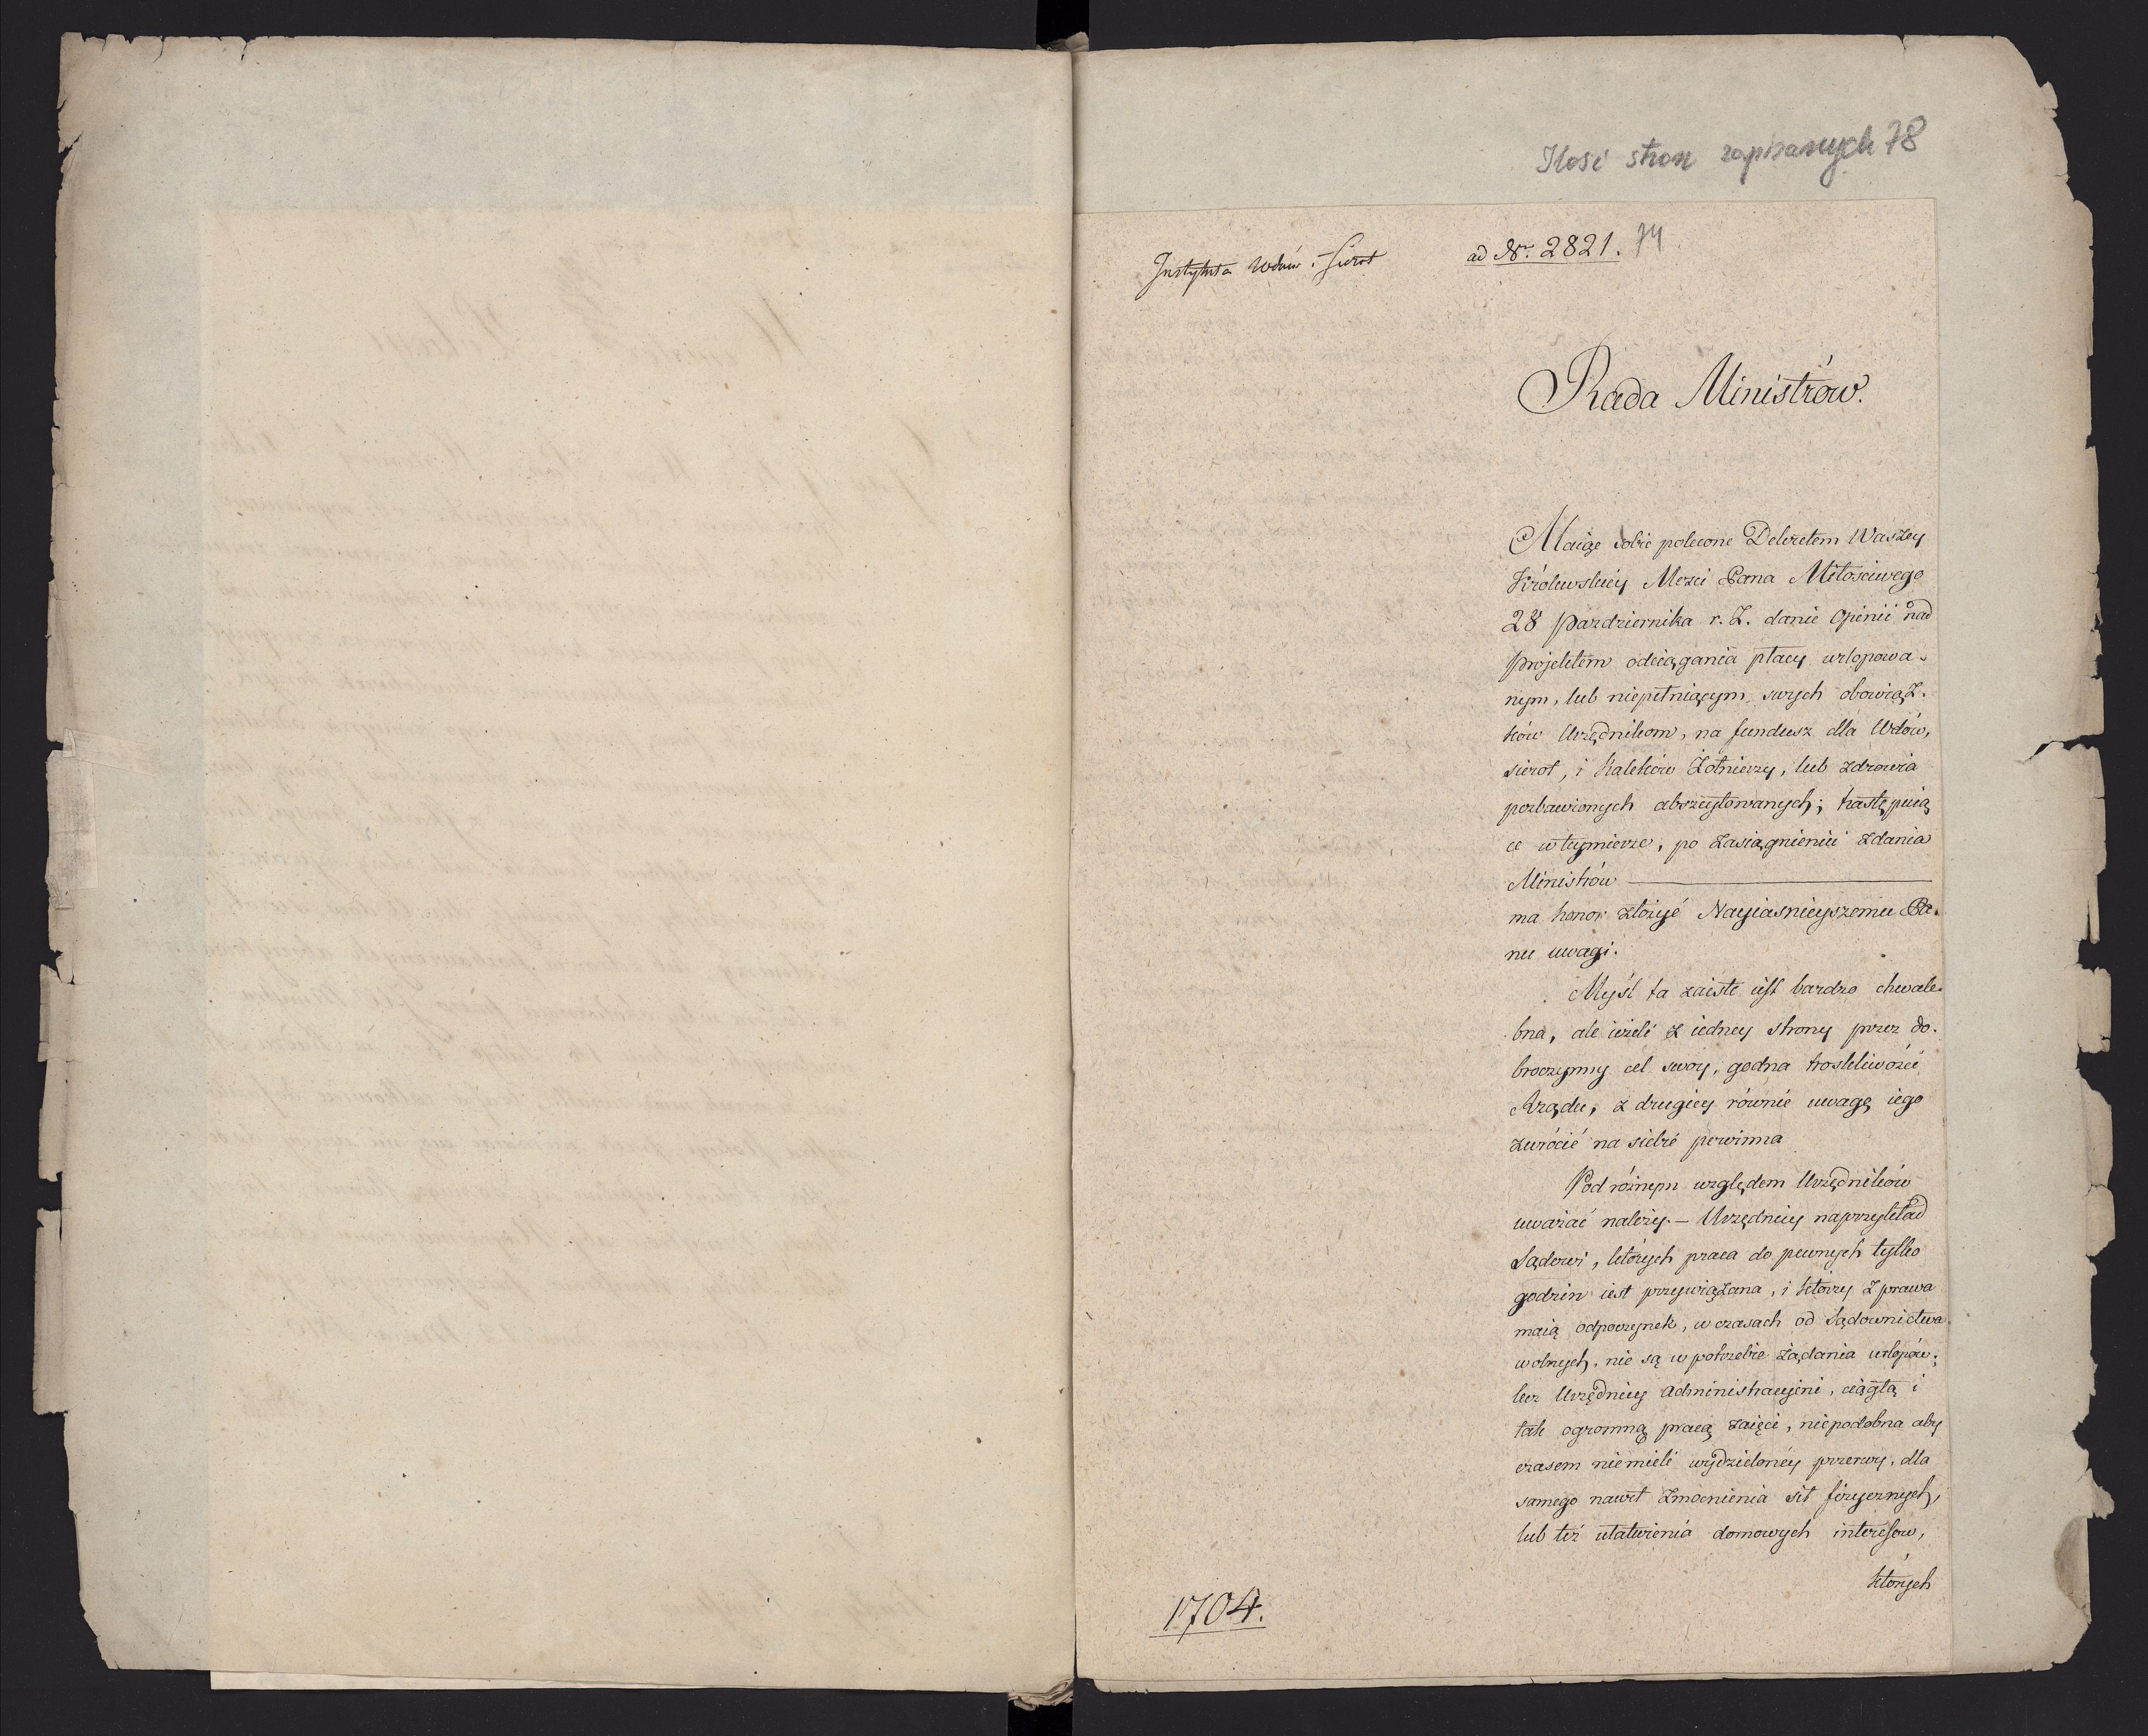 Ilość stron zapisanych 78
Instytuta Wdów i Sierot
ad Nr. 2821. 74
Rada Ministrów.
Maiąc sobie polecone Dekretem Waszey
Królewskiey Mości Pana Miłościwego
28 Pazdziernika r. z. danie Opinii nad
Projektem odciągania płacy urlopowa-
nym, lub niepełniącym swych obowiąz-
ków Urzędnikom, na fundusz dla Wdów,
sierot, i Kaleków Żołnierzy, lub zdrowia
pozbawionych abszytowanych; następuią
ce w tey mierze, po zasiągnieniu zdania
Ministrów
ma honor złożyć Nayiasnieyszemu Pa-
nu uwagi.
Myśl ta zaiste iest bardzo chwale-
bna, ale ieżeli z iedney strony przez do-
broczynny cel swoy, godna troskliwości
Rządu, z drugiey równie uwagę iego
zwrócić na siebie powinna
Pod różnym względem Urzędników
uważać należy. — Urzędnicy naprzykład
Sądowi, których praca do pewnych tylko
godzin iest przywiązana, i którzy z prawa
maią odpoczynek, w czasach od Sądownictwa
wolnych, nie są w potrzebie żądania urlopów;
lecz Urzędnicy Administracyini, ciągłą i
tak ogromną pracą zaięci, niepodobna aby
czasem niemieli wydzieloney przerwy, dla
samego nawet zmocnienia sił fizycznych,
lub też ułatwienia domowych interesow,
których
1704.